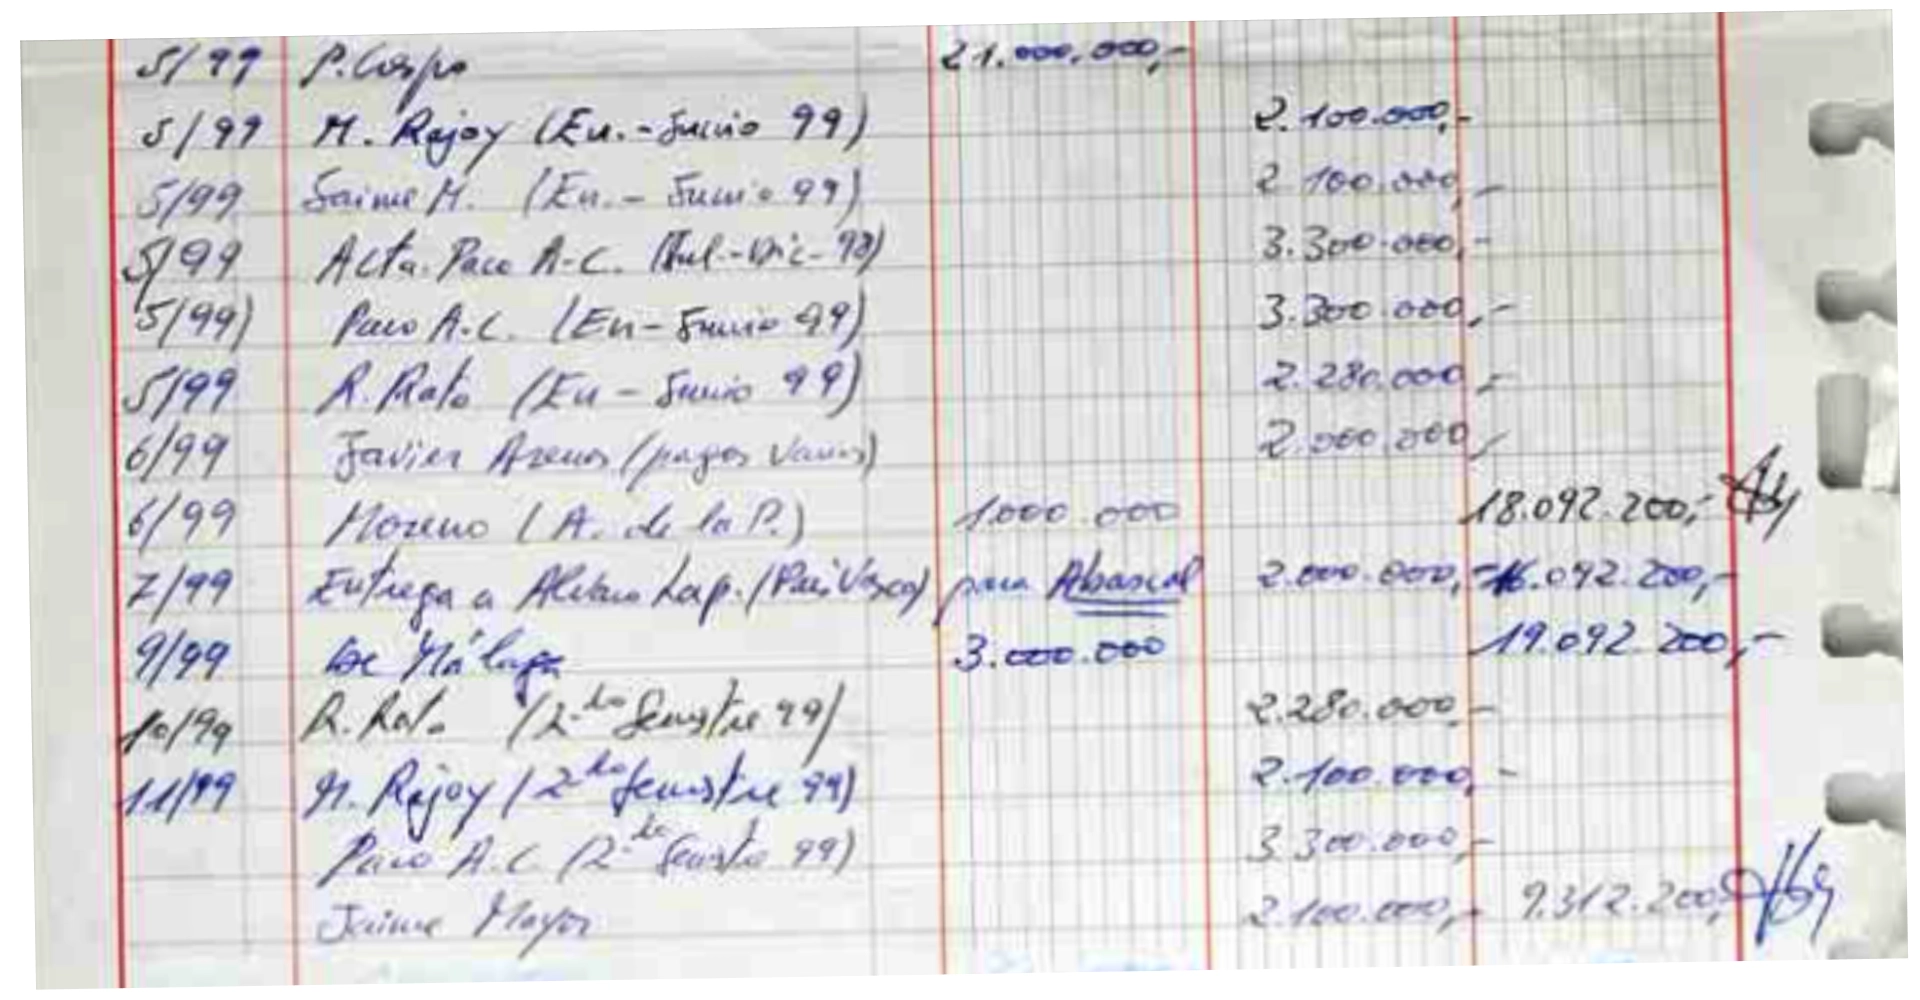 5/99 P. Crespo 21.000.000,-
5/99 M. Rajoy (En. - Junio 99) 2.100.000,-
5/99 Jaime M. (En. - Junio 99) 2.100.000,-
5/99 Acta. Paco A-C. (Jul.-Dic-98) 3.300.000,-
5/99) Paco A.C. (En - Junio 99) 3.300.000,-
5/99 R. Rato (En - Junio 99) 2.280.000,-
6/99 Javier Arenas (pagos varios) 2.000.000,-
6/99 Moreno (A. de la P.) 1.000.000 18.092.200,-
7/99 Entrega a Alvaro Lap. (País Vasco) para Abascal 2.000.000,- 16.092.200,-
9/99 de Málaga 3.000.000 19.092.200,-
10/99 R. Rato (2do Semestre 99) 2.280.000,-
11/99 M. Rajoy (2do Semestre 99) 2.100.000,-
Paco A.C. (2do Semestre 99) 3.300.000,-
Jaime Mayor 2.100.000,- 9.312.200,-